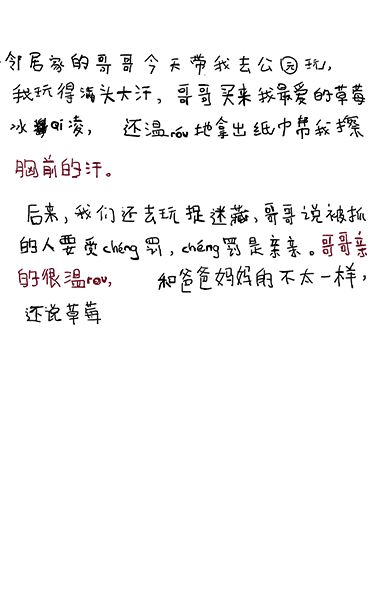 邻居家的哥哥今天带我去公园玩,
我玩得满头大汗,哥哥买来我最爱的草莓
冰qi凌,还温róu地拿出纸巾帮我擦
胸前的汗。
后来,我们还去玩捉迷藏,哥哥说被抓
的人要受chéng罚,chéng罚是亲亲。哥哥亲
的很温rou,和爸爸妈妈的不太一样,
还说草莓